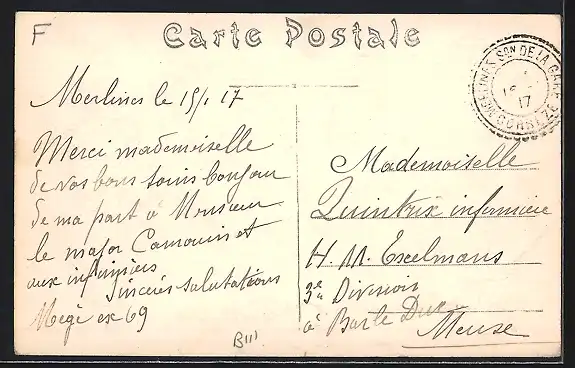 F
Carte Postale
Merlines le 15/1 17
Merci mademoiselle
de vos bons soins bonjour
de ma part à Monsieur
le major Camouin et
aux infirmiers
Sincères salutations
Mège ex 69
B111
MERLINES SON DE LA GARE
17
CORRÈZE
Mademoiselle
Quintrix infirmière
H. M. Exelmans
3e Division
à Bar le Duc
Meuse